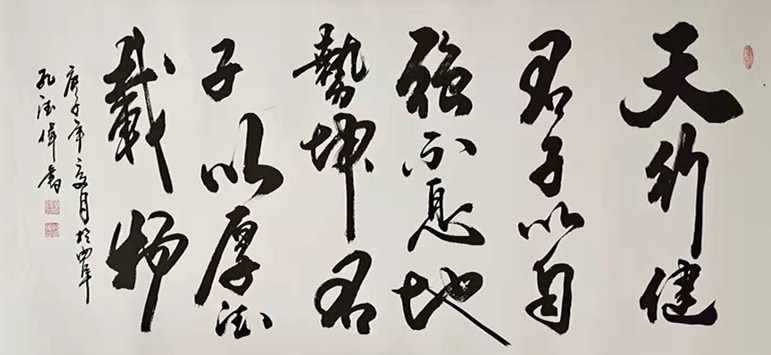 天行健
君子以自
强不息地
勢坤君
子以厚德
載物
庚子年夏月於曲阜
孔德偉書